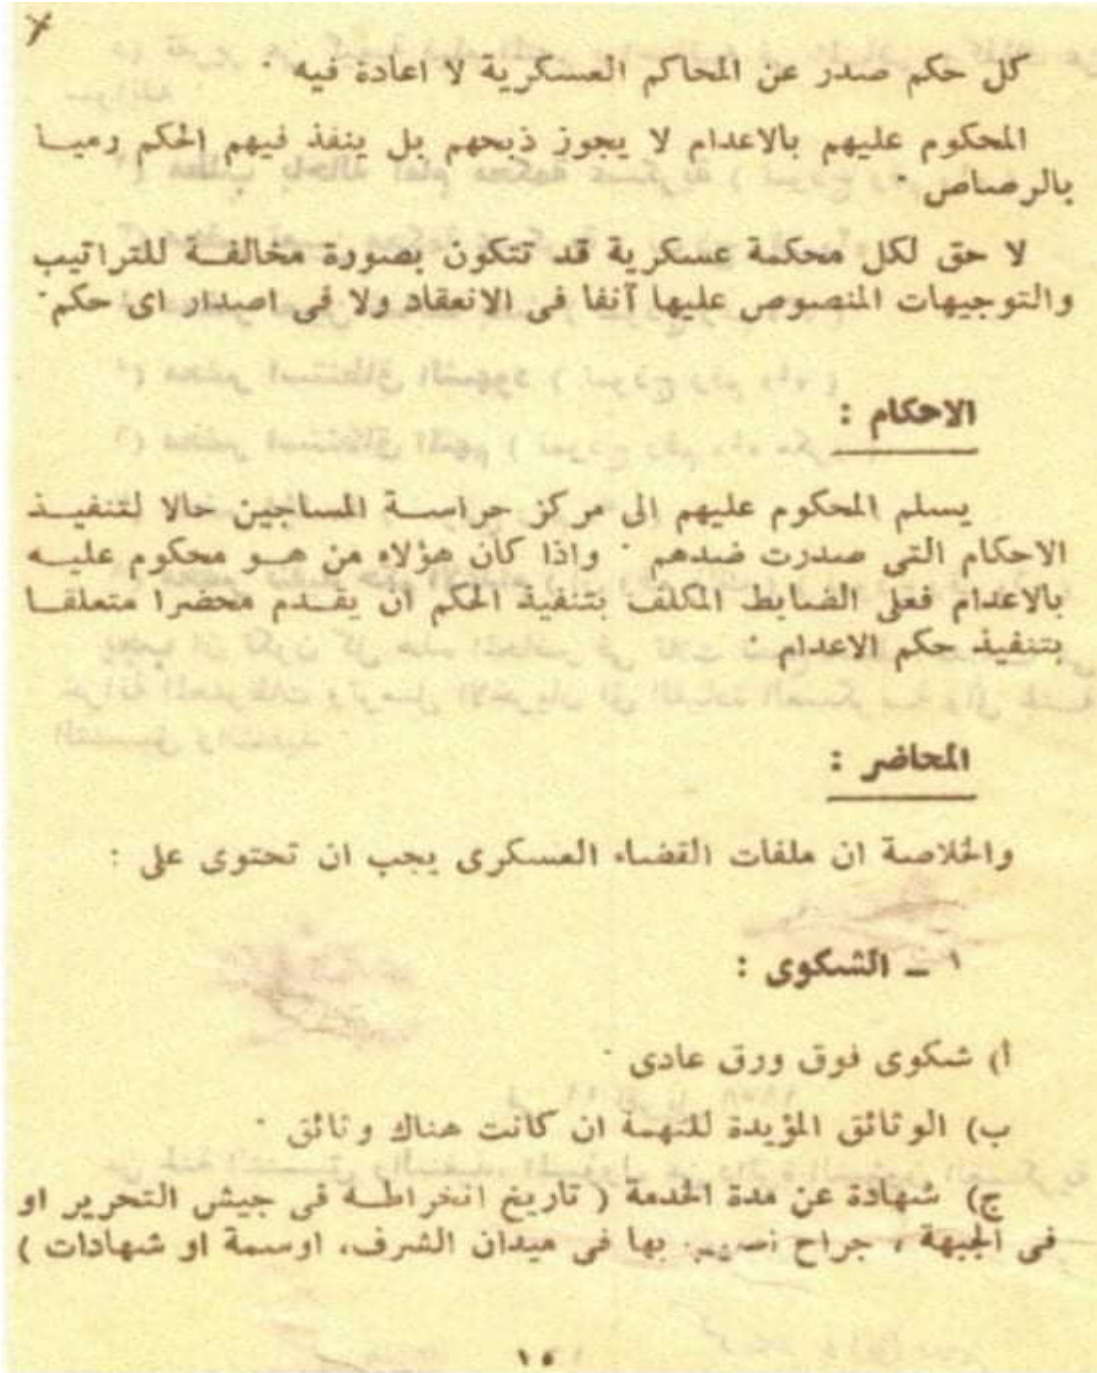 كل حكم صدر عن المحاكم العسكرية لا اعادة فيه ٠
المحكوم عليهم بالاعدام لا يجوز ذبحهم بل ينفذ فيهم الحكم رميـا
بالرصاص ٠
لا حق لكل محكمة عسكرية قد تتكون بصورة مخالفــة للتراتيب
والتوجيهات المنصوص عليها آنفا فى الانعقاد ولا فى اصدار اى حكم ٠
الاحكام :
يسلم المحكوم عليهم الى مركز حراســة المساجين حالا لتنفيــذ
الاحكام التى صدرت ضدهم ٠ واذا كان هؤلاء من هــو محكوم عليــه
بالاعدام فعلى الضابط المكلف بتنفيذ الحكم ان يقــدم محضرا متعلقــا
بتنفيذ حكم الاعدام ٠
المحاضر :
والخلاصة ان ملفات القضاء العسكرى يجب ان تحتوى على :
١ ــ الشكوى :
أ) شكوى فوق ورق عادى ٠
ب) الوثائق المؤيدة للتهمة ان كانت هناك وثائق ٠
ج) شهادة عن مدة الخدمة ( تاريخ انخراطــه فى جيش التحرير او
فى الجبهة ، جراح بها فى ميدان الشرف، اوسمة او شهادات )
١٥